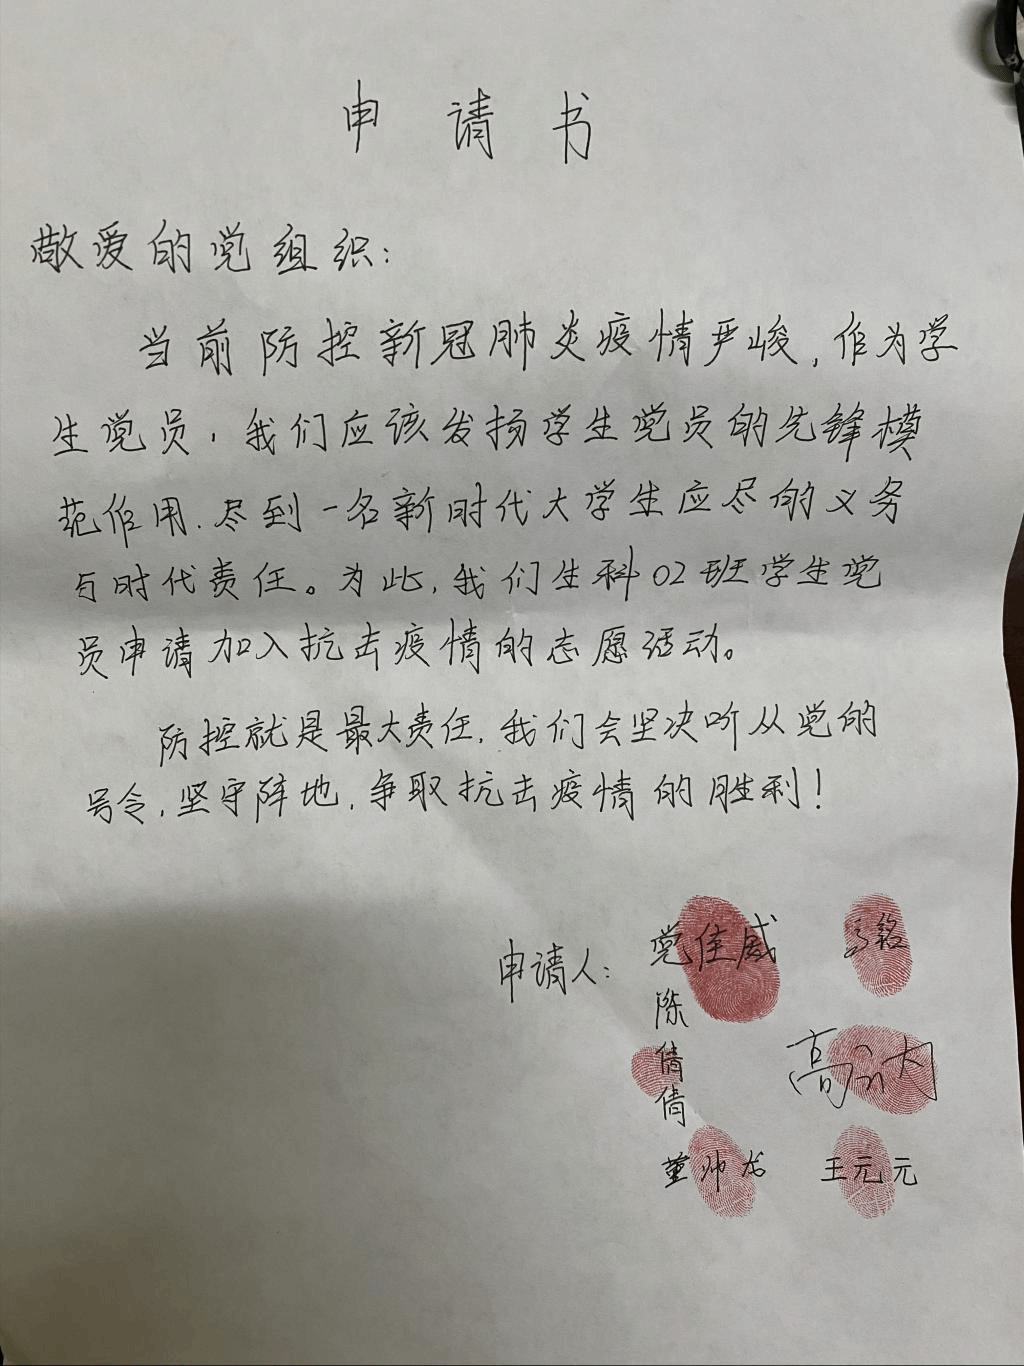 申请书
敬爱的党组织：
当前防控新冠肺炎疫情严峻，作为学
生党员，我们应该发扬学生党员的先锋模
范作用，尽到一名新时代大学生应尽的义务
与时代责任。为此，我们生科02班学生党
员申请加入抗击疫情的志愿活动。
防控就是最大责任，我们会坚决听从党的
号令，坚守阵地，争取抗击疫情的胜利！
申请人：党佳威
铭
陈倩倩
高
董帅龙 王元元